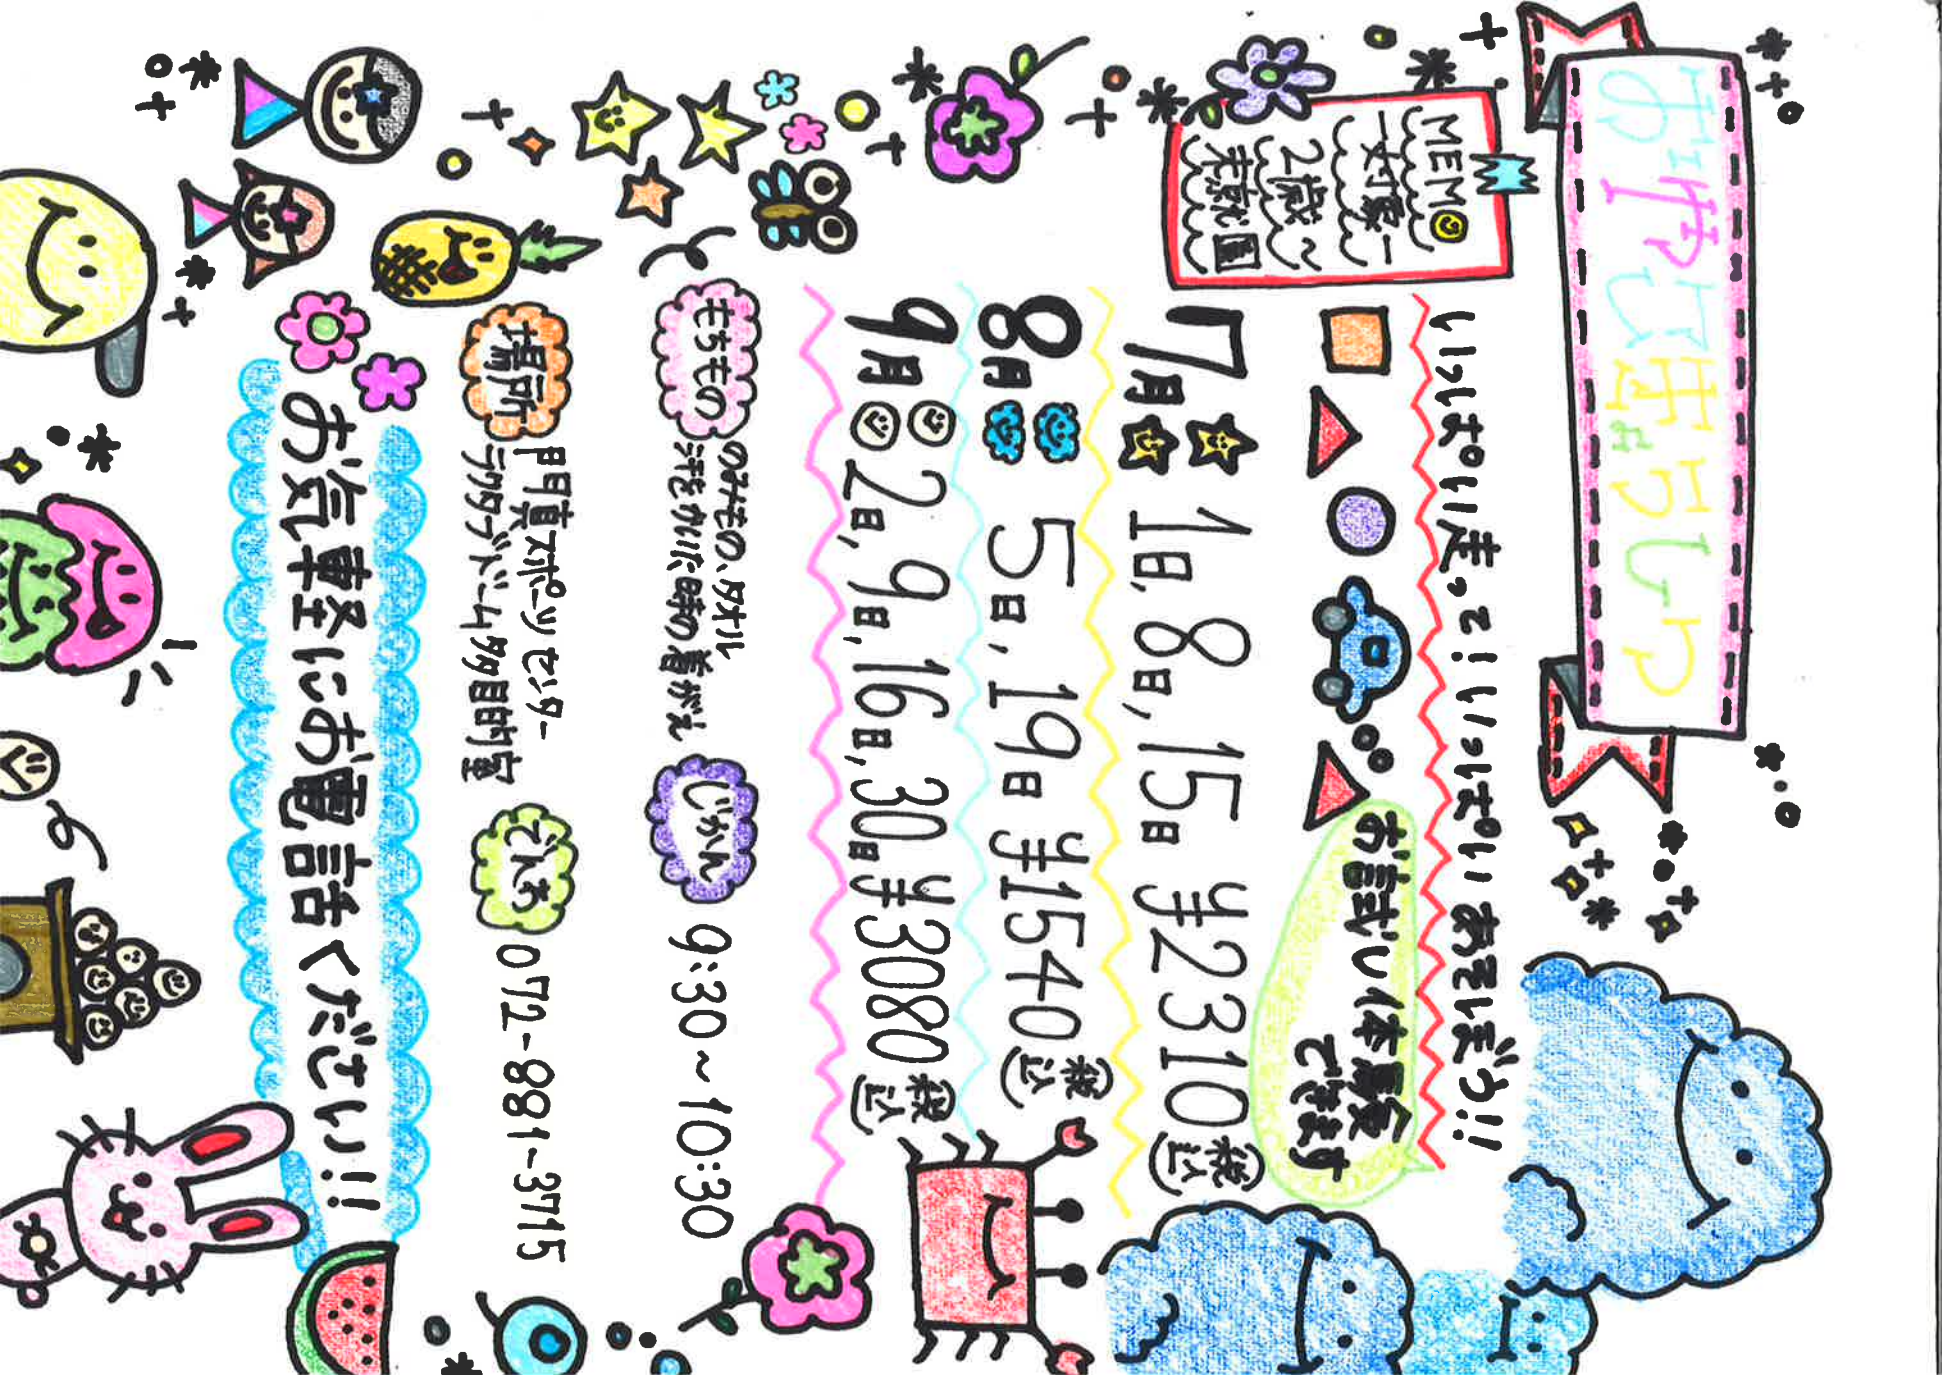 おやこひろば
MEMO
ー対象ー
2歳〜
未就園
いっぱい走って！いっぱい あそぼう!!
お試し体験
できます
7月 1日, 8日, 15日 ¥2310 (税込)
8月 5日, 19日 ¥1540 (税込)
9月 2日, 9日, 16日, 30日 ¥3080 (税込)
もちもの
のみもの、タオル
汗をかいた時の着がえ
じかん
9:30〜10:30
場所
門真スポーツセンター
ラクタブドーム多目的室
でんわ
072-881-3715
お気軽にお電話ください!!